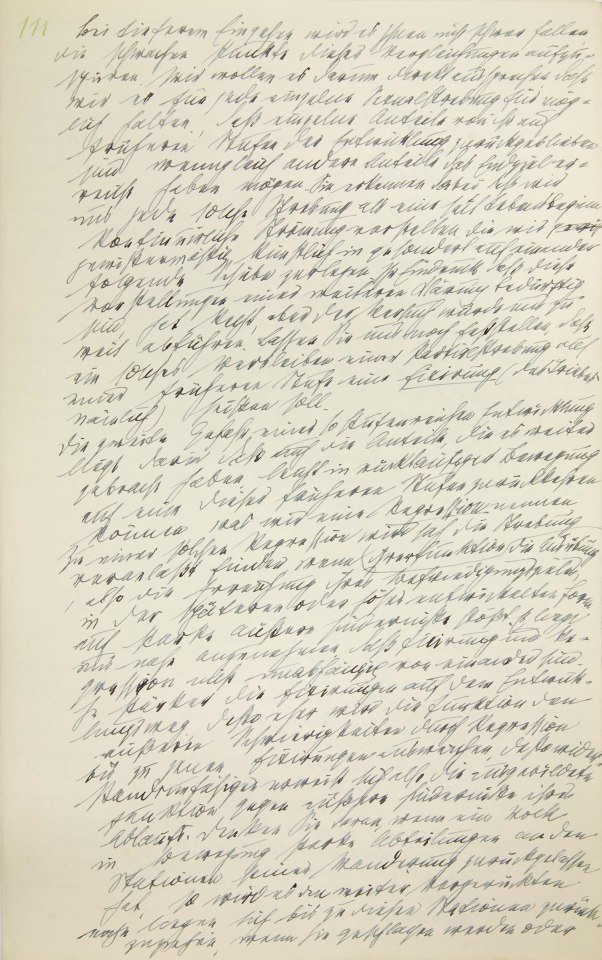 111
Bei tieferem Eingehen wird es Ihnen nicht schwer fallen
die schwachen Punkte dieser Vergleichungen aufzu-
spüren. Wir wollen es darum direkt aussprechen daß
wir es für jede einzelne Sexualstrebung für mög-
lich halten, daß einzelne Anteile von ihr auf
früheren Stufen der Entwicklung zurückgeblieben
sind, wenngleich andere Anteile das Endziel er-
reicht haben mögen. Sie erkennen dabei daß wir
uns jede solche Strebung als eine seit Lebensbeginn
kontinuirliche Strömung vorstellen die wir
gewissermaßen künstlich in gesondert auf einander
folgende Schübe zerlegen. Ihr Eindruck daß diese
Vorstellungen einer weiteren Klärung bedürftig
sind, hat Recht, aber der Versuch würde uns zu
weit abführen. Lassen Sie uns noch feststellen, daß
ein solches Verbleiben einer Partialstrebung auf
einer früheren Stufe eine Fixirung (des Triebes
nämlich) heißen soll.
Die zweite Gefahr einer so stufenweisen Entwicklung
liegt darin daß auch die Anteile, die es weiter
gebracht haben leicht in rückläufiger Bewegung
auf eine dieser früheren Stufen zurückkehren
können, was wir eine Regression nennen.
Zu einer solchen Regression wird sich die Strebung
veranlaßt finden, wenn ihrer Funktion die Ausübung
, also die Erreichung ihres Befriedigungszieles
in der späteren oder höher entwickelten Form
auf starke äußere Hindernisse stößt. Es liegt
uns nahe anzunehmen daß Fixirung und Re-
gression nicht unabhängig von einander sind.
Je stärker die Fixirungen auf dem Entwick-
lungsweg, desto eher wird die Funktion den
äußeren Schwierigkeiten durch Regression
bis zu jenen Fixirungen ausweichen, desto wider-
standsunfähiger erweist sich also die ausgebildete
Funktion gegen äußere Hindernisse ihres
Ablaufs. Denken Sie daran, wenn ein Volk
in Bewegung starke Abteilungen an den
Stationen seiner Wanderung zurückgelassen
hat, so wird es den weiter Vorgerückten
nahe liegen sich bis zu diesen Stationen zurück-
zuziehen, wenn sie geschlagen werden oder